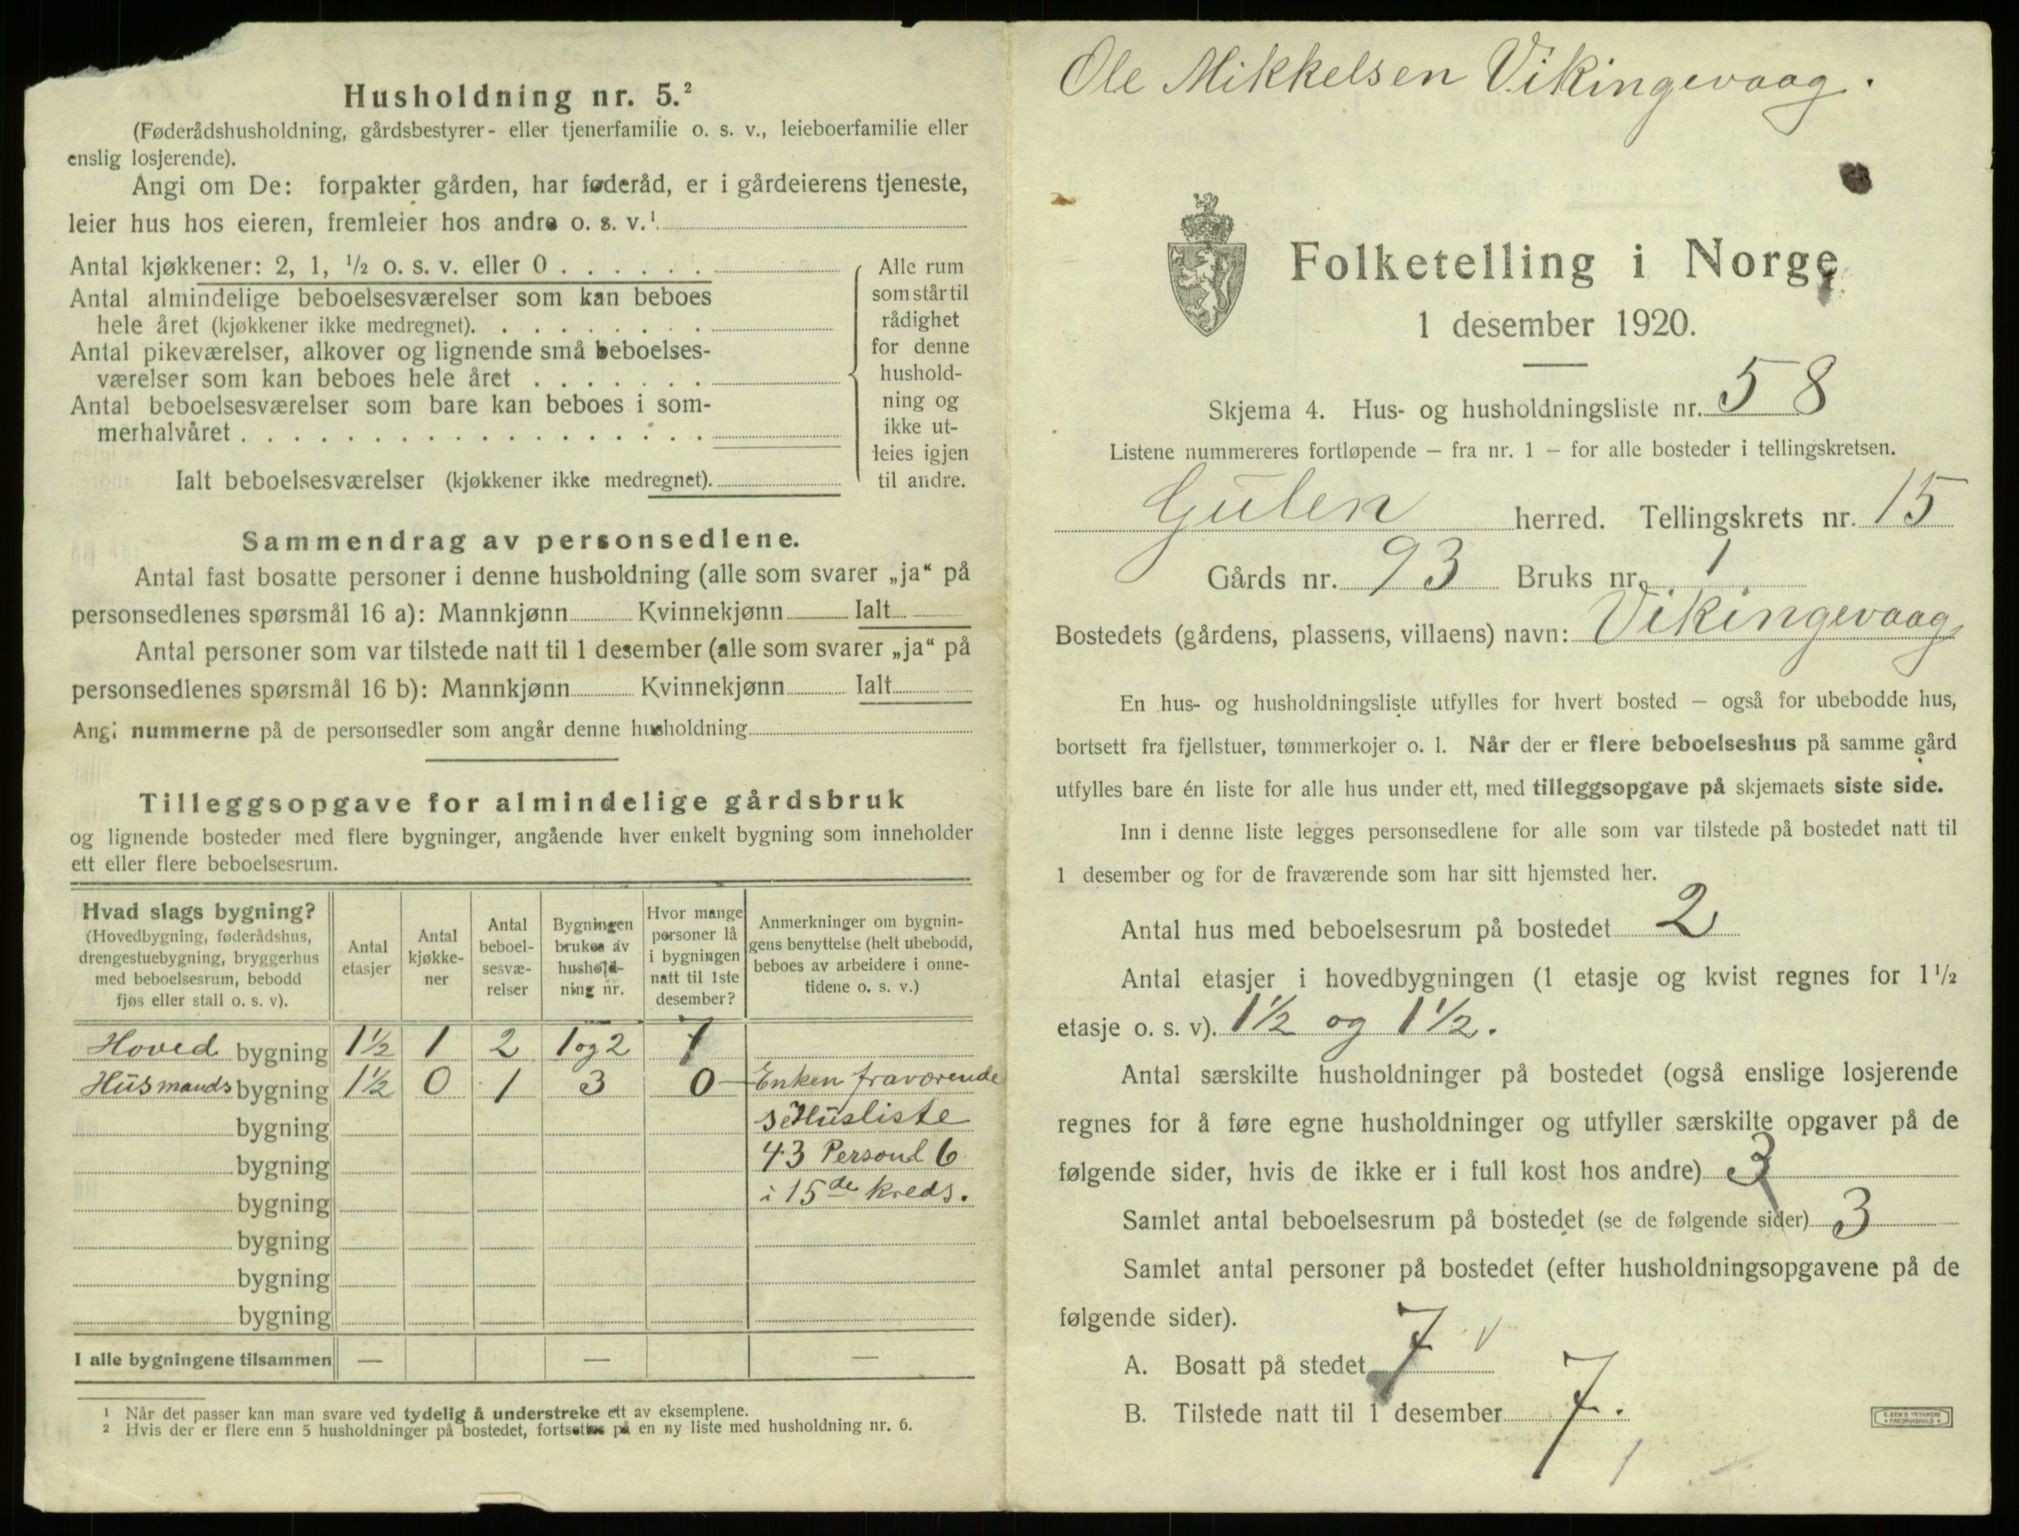 Husholdning nr. 5.²
(Føderådshusholdning, gårdsbestyrer- eller tjenerfamilie o. s. v., leieboerfamilie eller
enslig losjerende).
Angi om De: forpakter gården, har føderåd, er i gårdeierens tjeneste,
leier hus hos eieren, fremleier hos andre o. s. v.¹
Antal kjøkkener: 2, 1, ½ o. s. v. eller 0 . . . . . .
Antal almindelige beboelsesværelser som kan beboes
hele året (kjøkkener ikke medregnet). . . . . . . . .
Antal pikeværelser, alkover og lignende små beboelses-
værelser som kan beboes hele året . . . . . . .
Antal beboelsesværelser som bare kan beboes i som-
merhalvåret . . . . . . . . . . . . . . . . . .
Ialt beboelsesværelser (kjøkkener ikke medregnet).
Alle rum
som står til
rådighet
for denne
hushold-
ning og
ikke ut-
leies igjen
til andre.
Sammendrag av personsedlene.
Antal fast bosatte personer i denne husholdning (alle som svarer „ja“ på
personsedlenes spørsmål 16 a): Mannkjønn Kvinnekjønn Ialt
Antal personer som var tilstede natt til 1 desember (alle som svarer „ja“ på
personsedlenes spørsmål 16 b): Mannkjønn Kvinnekjønn Ialt
Angi nummerne på de personsedler som angår denne husholdning
Tilleggsopgave for almindelige gårdsbruk
og lignende bosteder med flere bygninger, angående hver enkelt bygning som inneholder
ett eller flere beboelsesrum.
Hvad slags bygning?
(Hovedbygning, føderådshus,
drengestuebygning, bryggerhus
med beboelsesrum, bebodd
fjøs eller stall o. s. v).
Antal
etasjer
Antal
kjøkke-
ner
Antal
beboel-
sesvæ-
relser
Bygningen
brukes av
hushold-
ning nr.
Hvor mange
personer lå
i bygningen
natt til 1ste
desember?
Anmerkninger om bygnin-
gens benyttelse (helt ubebodd,
beboes av arbeidere i onne-
tidene o. s. v.)
Hoved bygning 1½ 1 2 1 og 2 7
Husmands bygning 1½ 0 1 3 0 Enken fraværende
bygning se Husliste
bygning 43 Personl 6
bygning i 15de kreds.
bygning
bygning
bygning
I alle bygningene tilsammen — — —
¹ Når det passer kan man svare ved tydelig å understreke ett av eksemplene.
² Hvis der er flere enn 5 husholdninger på bostedet, fortsettes på en ny liste med husholdning nr. 6.
Ole Mikkelsen Vikingevaag.
Folketelling i Norge
1 desember 1920.
Skjema 4. Hus- og husholdningsliste nr. 58
Listene nummereres fortløpende — fra nr. 1 — for alle bosteder i tellingskretsen.
Gulen herred. Tellingskrets nr. 15
Gårds nr. 93 Bruks nr. 1
Bostedets (gårdens, plassens, villaens) navn: Vikingevaag
En hus- og husholdningsliste utfylles for hvert bosted — også for ubebodde hus,
bortsett fra fjellstuer, tømmerkojer o. l. Når der er flere beboelseshus på samme gård
utfylles bare én liste for alle hus under ett, med tilleggsopgave på skjemaets siste side.
Inn i denne liste legges personsedlene for alle som var tilstede på bostedet natt til
1 desember og for de fraværende som har sitt hjemsted her.
Antal hus med beboelsesrum på bostedet 2
Antal etasjer i hovedbygningen (1 etasje og kvist regnes for 1½
etasje o. s. v). 1½ og 1½.
Antal særskilte husholdninger på bostedet (også enslige losjerende
regnes for å føre egne husholdninger og utfyller særskilte opgaver på de
følgende sider, hvis de ikke er i full kost hos andre) 3
Samlet antal beboelsesrum på bostedet (se de følgende sider) 3
Samlet antal personer på bostedet (efter husholdningsopgavene på de
følgende sider).
A. Bosatt på stedet 7
B. Tilstede natt til 1 desember 7.